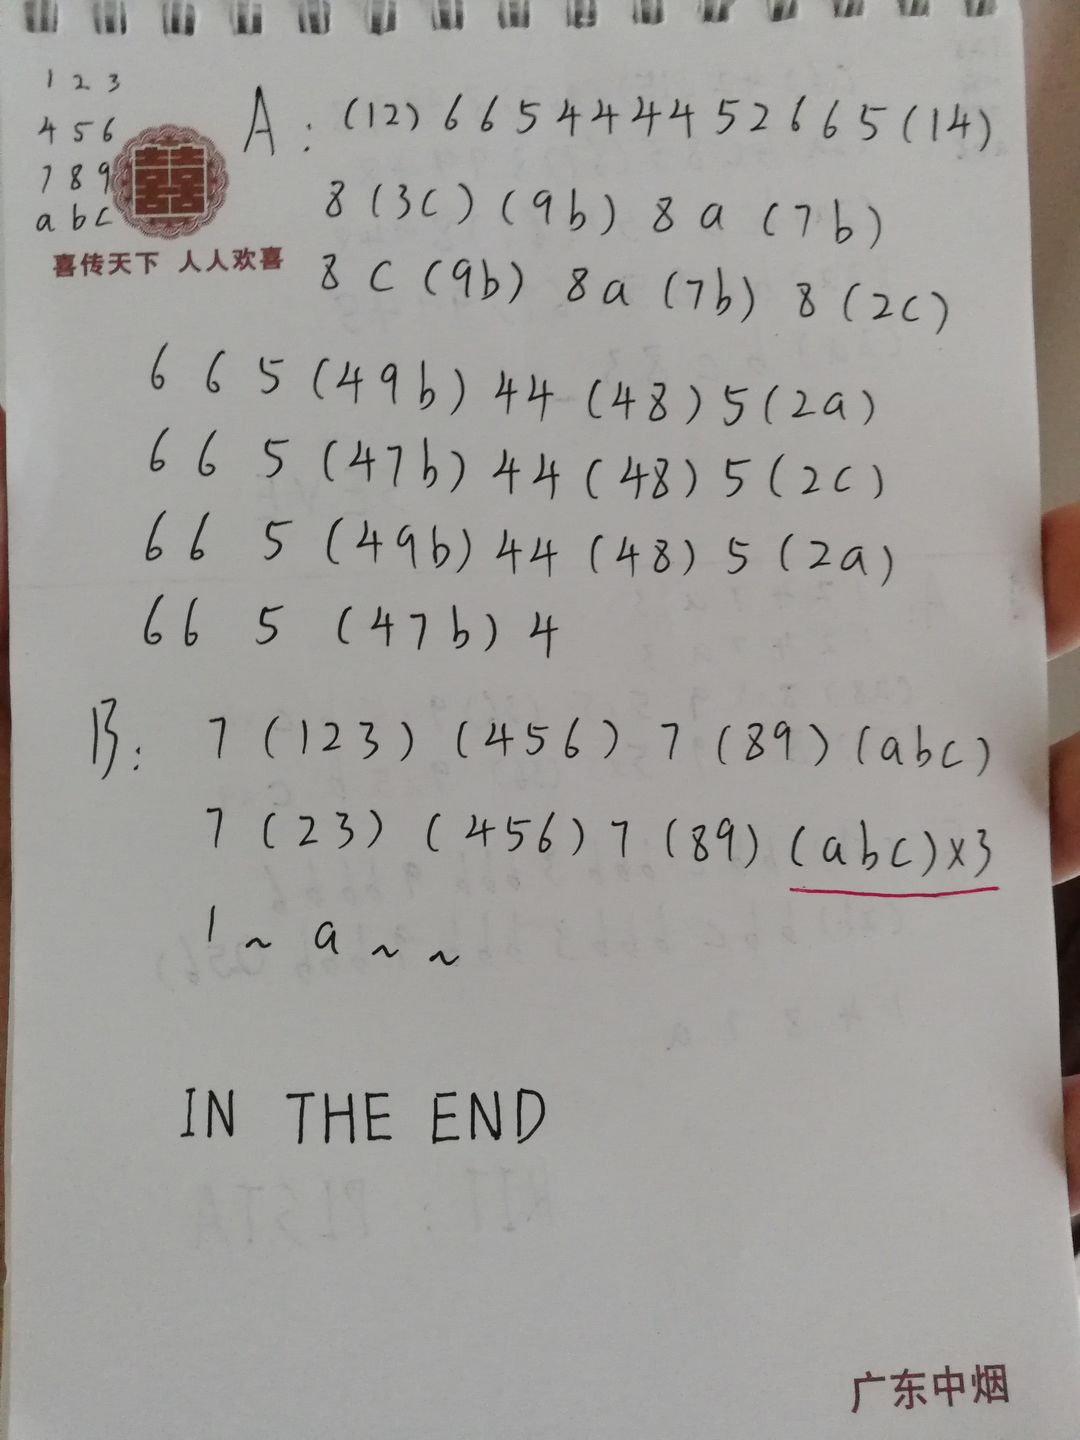 1 2 3
4 5 6
7 8 9
a b c
囍
喜传天下 人人欢喜
A: (12) 6 6 5 4 4 4 4 5 2 6 6 5 (14)
8 (3c) (9b) 8 a (7b)
8 c (9b) 8 a (7b) 8 (2c)
6 6 5 (49b) 44 (48) 5 (2a)
6 6 5 (47b) 44 (48) 5 (2c)
6 6 5 (49b) 44 (48) 5 (2a)
6 6 5 (47b) 4
B: 7 (123) (456) 7 (89) (abc)
7 (23) (456) 7 (89) (abc)x3
1 ~ a ~ ~
IN THE END
广东中烟